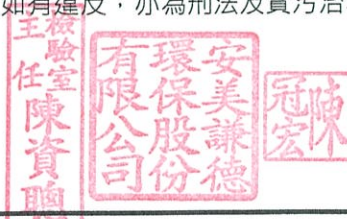 如有違反,亦為刑法及貪污治
檢驗室
主任
陳資聰
安美謙德
環保股份
有限公司
陳冠宏